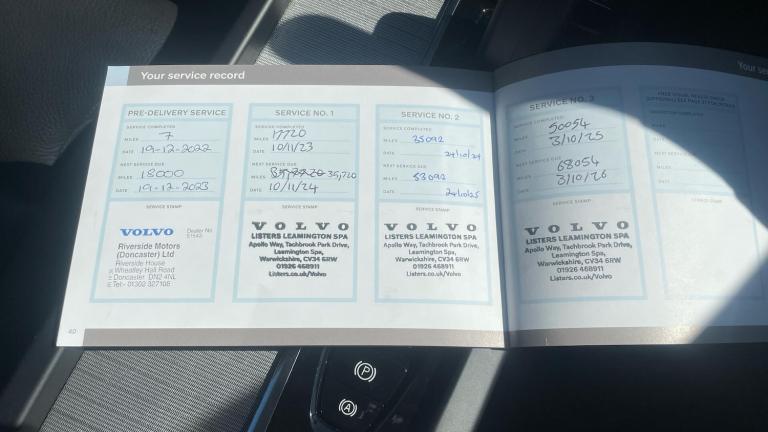 Your service record
PRE-DELIVERY SERVICE
SERVICE COMPLETED
MILES 7
DATE 19-12-2022
NEXT SERVICE DUE
MILES 18000
DATE 19-12-2023
SERVICE STAMP
VOLVO
Dealer No
Riverside Motors
(Doncaster) Ltd
Riverside House
Wheatley Hall Road
Doncaster DN2 4NL
Tel:- 01302 327108
40
SERVICE NO. 1
SERVICE COMPLETED
MILES 17720
DATE 10/11/23
NEXT SERVICE DUE
MILES 35,720
DATE 10/11/24
SERVICE STAMP
VOLVO
LISTERS LEAMINGTON SPA
Apollo Way, Tachbrook Park Drive,
Leamington Spa,
Warwickshire, CV34 6RW
01926 468911
Listers.co.uk/Volvo
SERVICE NO. 2
SERVICE COMPLETED
MILES 35092
DATE 24/10/24
NEXT SERVICE DUE
MILES 53092
DATE 24/10/25
SERVICE STAMP
VOLVO
LISTERS LEAMINGTON SPA
Apollo Way, Tachbrook Park Drive,
Leamington Spa,
Warwickshire, CV34 6RW
01926 468911
Listers.co.uk/Volvo
SERVICE NO. 3
SERVICE COMPLETED
MILES 50054
DATE 3/10/25
NEXT SERVICE DUE
MILES 68054
DATE 3/10/26
SERVICE STAMP
VOLVO
LISTERS LEAMINGTON SPA
Apollo Way, Tachbrook Park Drive,
Leamington Spa,
Warwickshire, CV34 6RW
01926 468911
Listers.co.uk/Volvo
Your
SERVICE STAMP
P
A